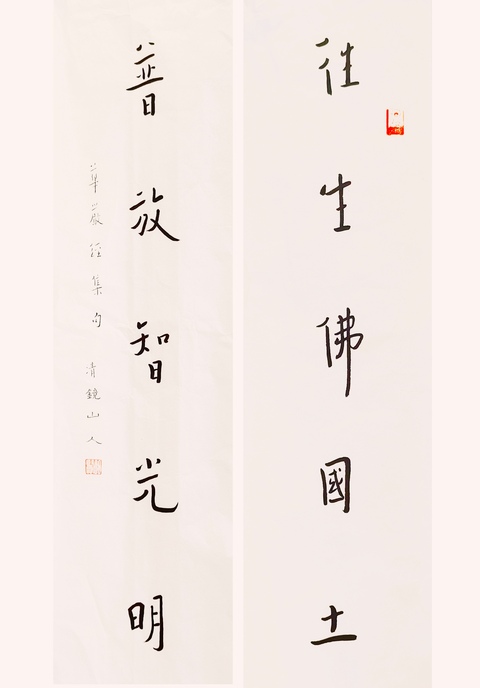 往生佛國土
普放智光明
華嚴經集句 清鏡山人